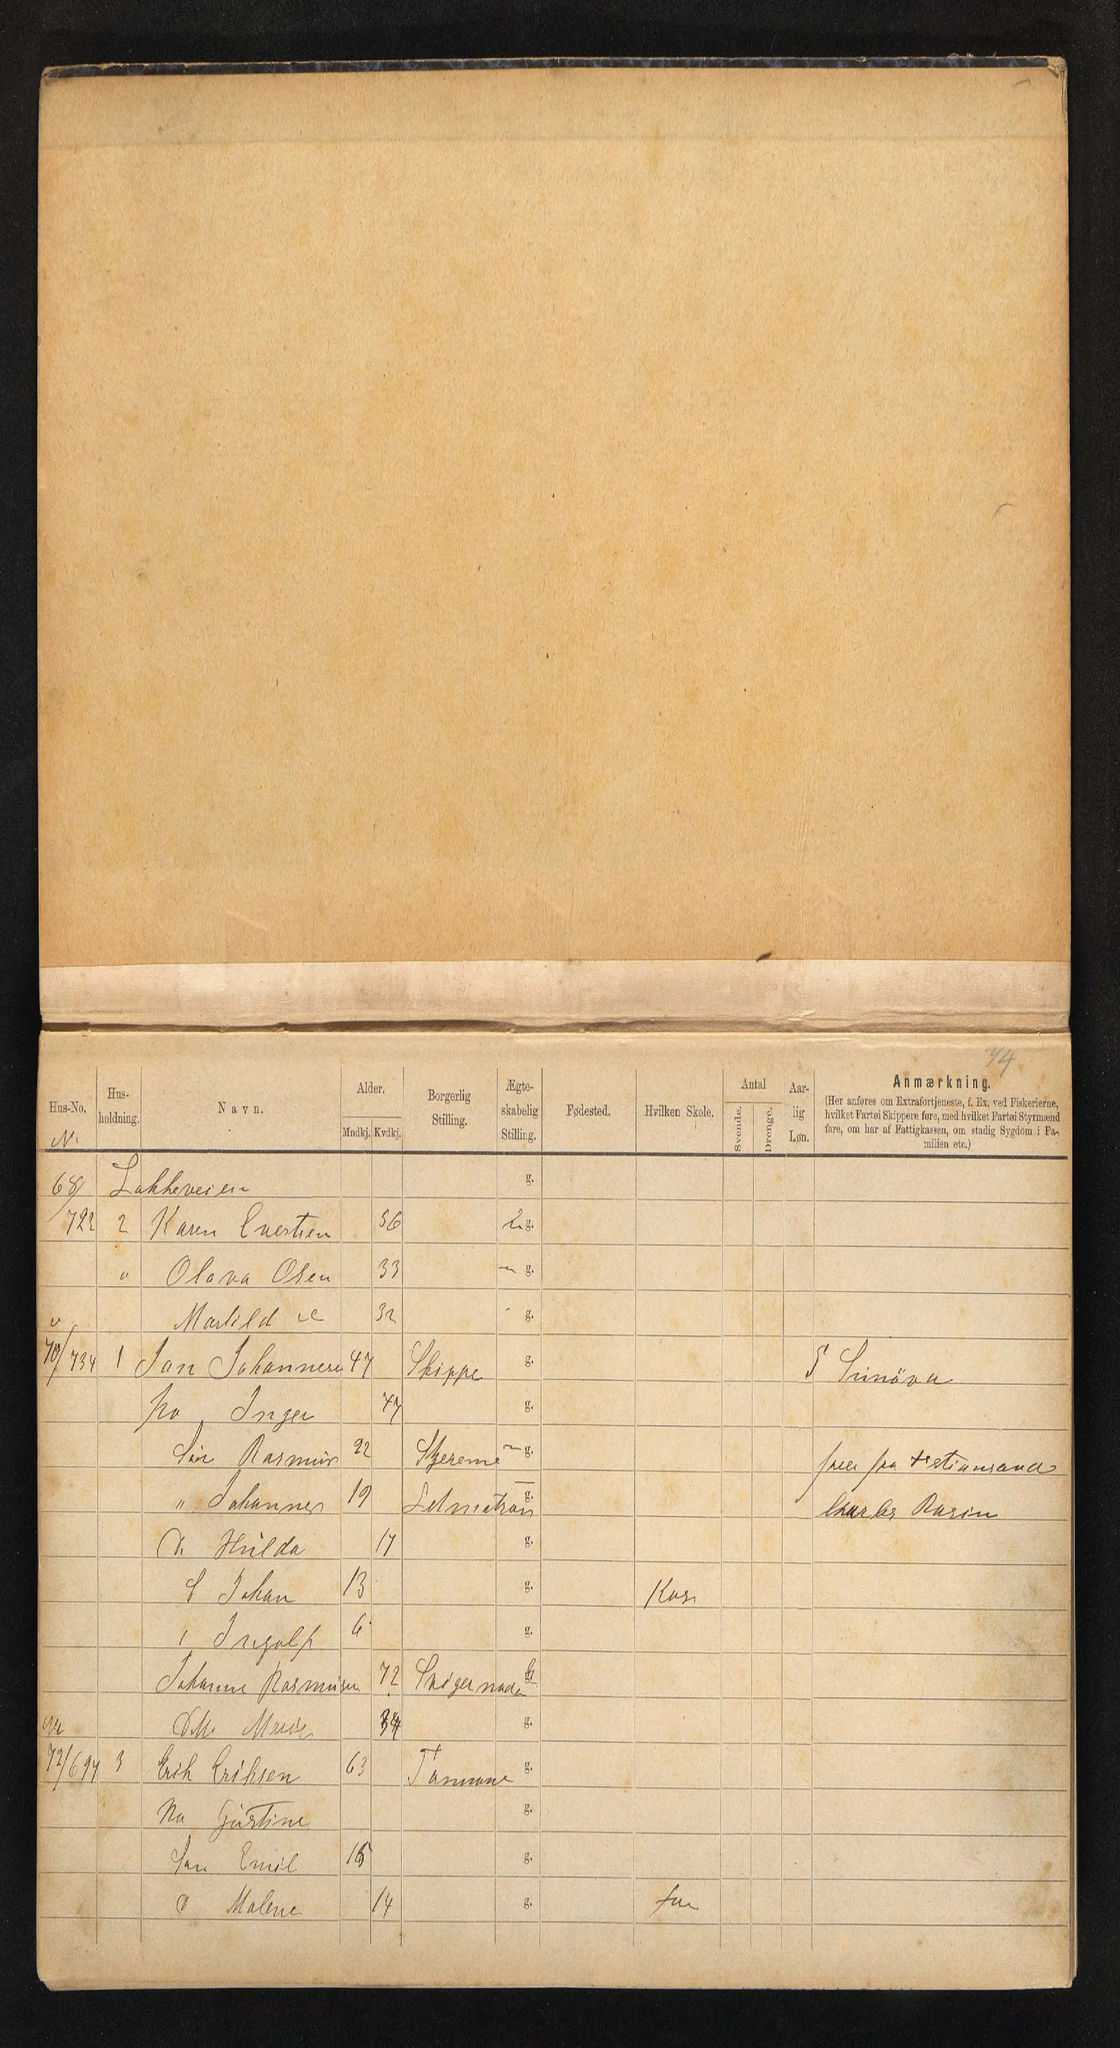 74
Hus-No. Hus-holdning. Navn. Alder. Mndkj. Kvdkj. Borgerlig Stilling. Ægte-skabelig Stilling. Fødested. Hvilken Skole. Antal Svende. Drenge. Aar-lig Løn. Anmærkning.
(Her anføres om Extrafortjeneste, f. Ex. ved Fiskerierne, hvilket Partøi Skippere føre, med hvilket Partøi Styrmænd fare, om har af Fattigkassen, om stadig Sygdom i Fa-milien etc.)
N.
68/ Løkkeveien g.
722 2 Karen Evertsen 56 g.
" Olava Olsen 33 g.
Martild 32 g.
70/734 1 Jan Johannesen 47 Skippe g. S Sunöva
Ko Inger 47 g.
Sön Rasmus 22 g.
" Johannes 19 g. Charles Rasin
D. Hulda 17 g.
S Johan 13 g. Kos
Ingolf 6 g.
Johanne Rasmusen 72 Svigermoder
g.
72/694 3 Erik Eriksen 63 g.
Ko Gurstine g.
Sön Emil 15 g.
D Malene 14 g.